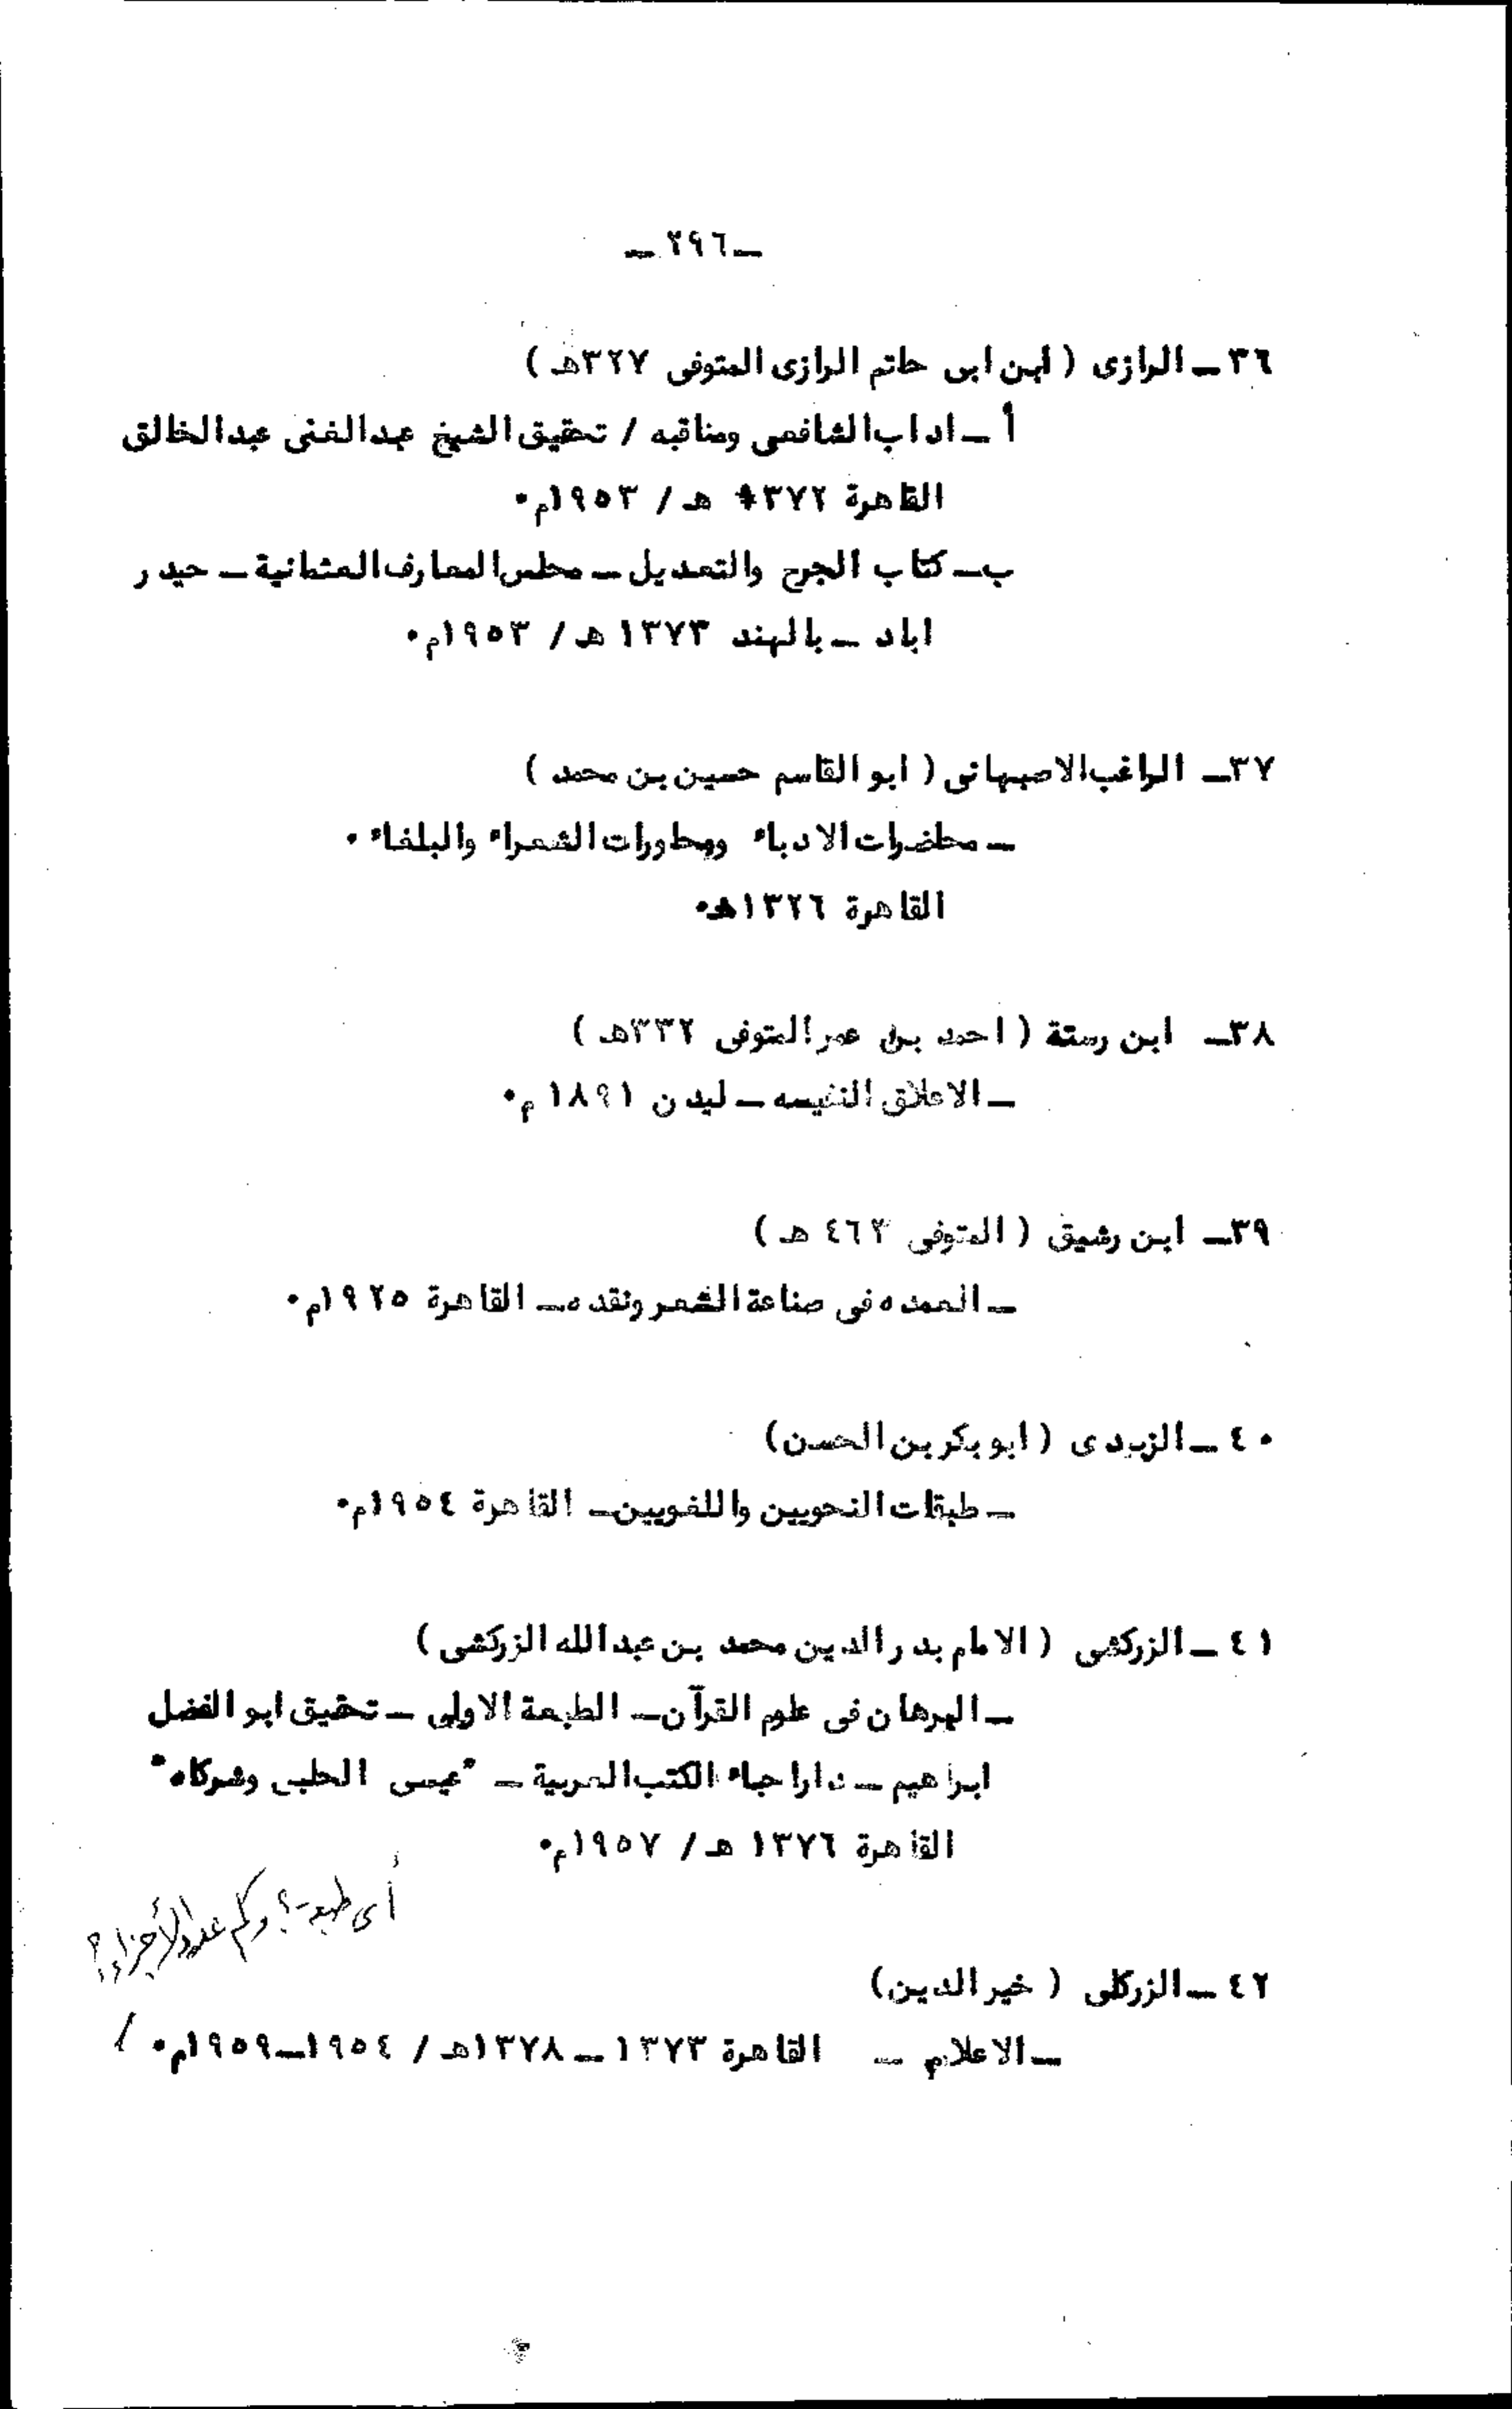 ـ ٢٩٦ ـ
٣٦ ـ الرازى ( ابن ابى حاتم الرازى المتوفى ٣٢٧هـ )
أ ـ اداب الشافعى ومناقبه / تحقيق الشيخ عبدالغنى عبدالخالق
القاهرة ١٣٧٢ هـ / ١٩٥٣م٠
ب ـ كتاب الجرح والتعديل ـ مجلس المعارف العثمانية ـ حيدر
اباد ـ بالهند ١٣٧٣ هـ / ١٩٥٣م٠
٣٧ ـ الراغب الاصبهانى ( ابو القاسم حسين بن محمد )
ـ محاضرات الادباء ومحاورات الشعراء والبلغاء ٠
القاهرة ١٣٢٦هـ٠
٣٨ ـ ابن رستة ( احمد بن عمر المتوفى ٣٣٢هـ )
ـ الاعلاق النفيسه ـ ليدن ١٨٩١ م٠
٣٩ ـ ابن رشيق ( المتوفى ٤٦٣ هـ )
ـ العمده فى صناعة الشعر ونقده ـ القاهرة ١٩٢٥م٠
٤٠ ـ الزبيدى ( ابو بكر بن الحسن)
ـ طبقات النحويين واللغويين ـ القاهرة ١٩٥٤م٠
٤١ ـ الزركشى ( الامام بدر الدين محمد بن عبدالله الزركشى )
ـ البرهان فى علوم القرآن ـ الطبعة الاولى ـ تحقيق ابو الفضل
ابراهيم ـ دار احياء الكتب العربية ـ "عيسى الحلبى وشركاه"
القاهرة ١٣٧٦ هـ / ١٩٥٧م٠
أى طبعة؟ وكم عدد الأجزاء؟
٤٢ ـ الزركلى ( خير الدين)
ـ الاعلام ـ القاهرة ١٣٧٣ ـ ١٣٧٨هـ / ١٩٥٤ـ١٩٥٩م٠ /